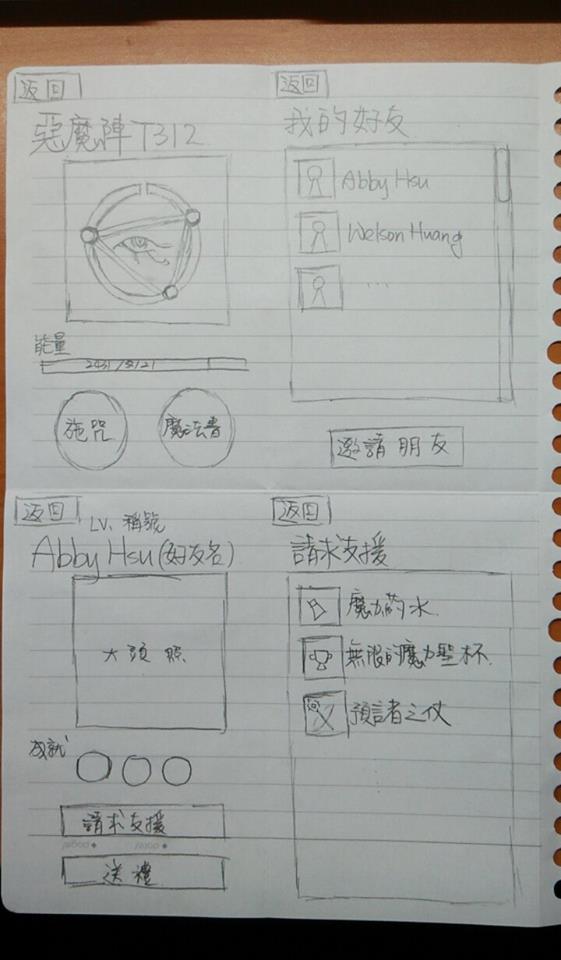 返回
惡魔陣T312
能量
施咒
魔法書
返回
我的好友
Abby Hsu
Welson Huang
...
邀請朋友
返回
LV. 稱號
Abby Hsu(好友名)
大頭照
成就
請求支援
送禮
返回
請求支援
魔力药水
無限的魔力聖杯
預言者之仗